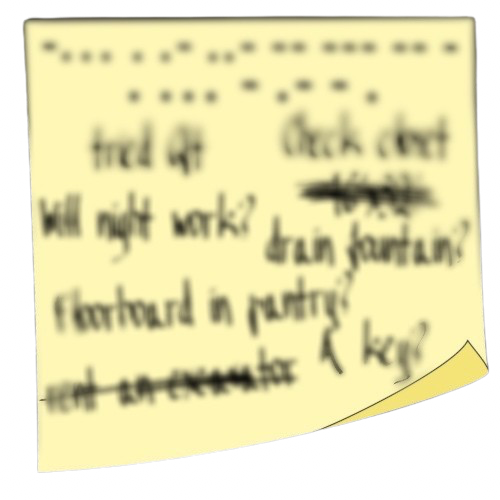 tried
Check closet
Will night work?
drain fountain?
Floorboard in pantry?
A key?
rent an excavator